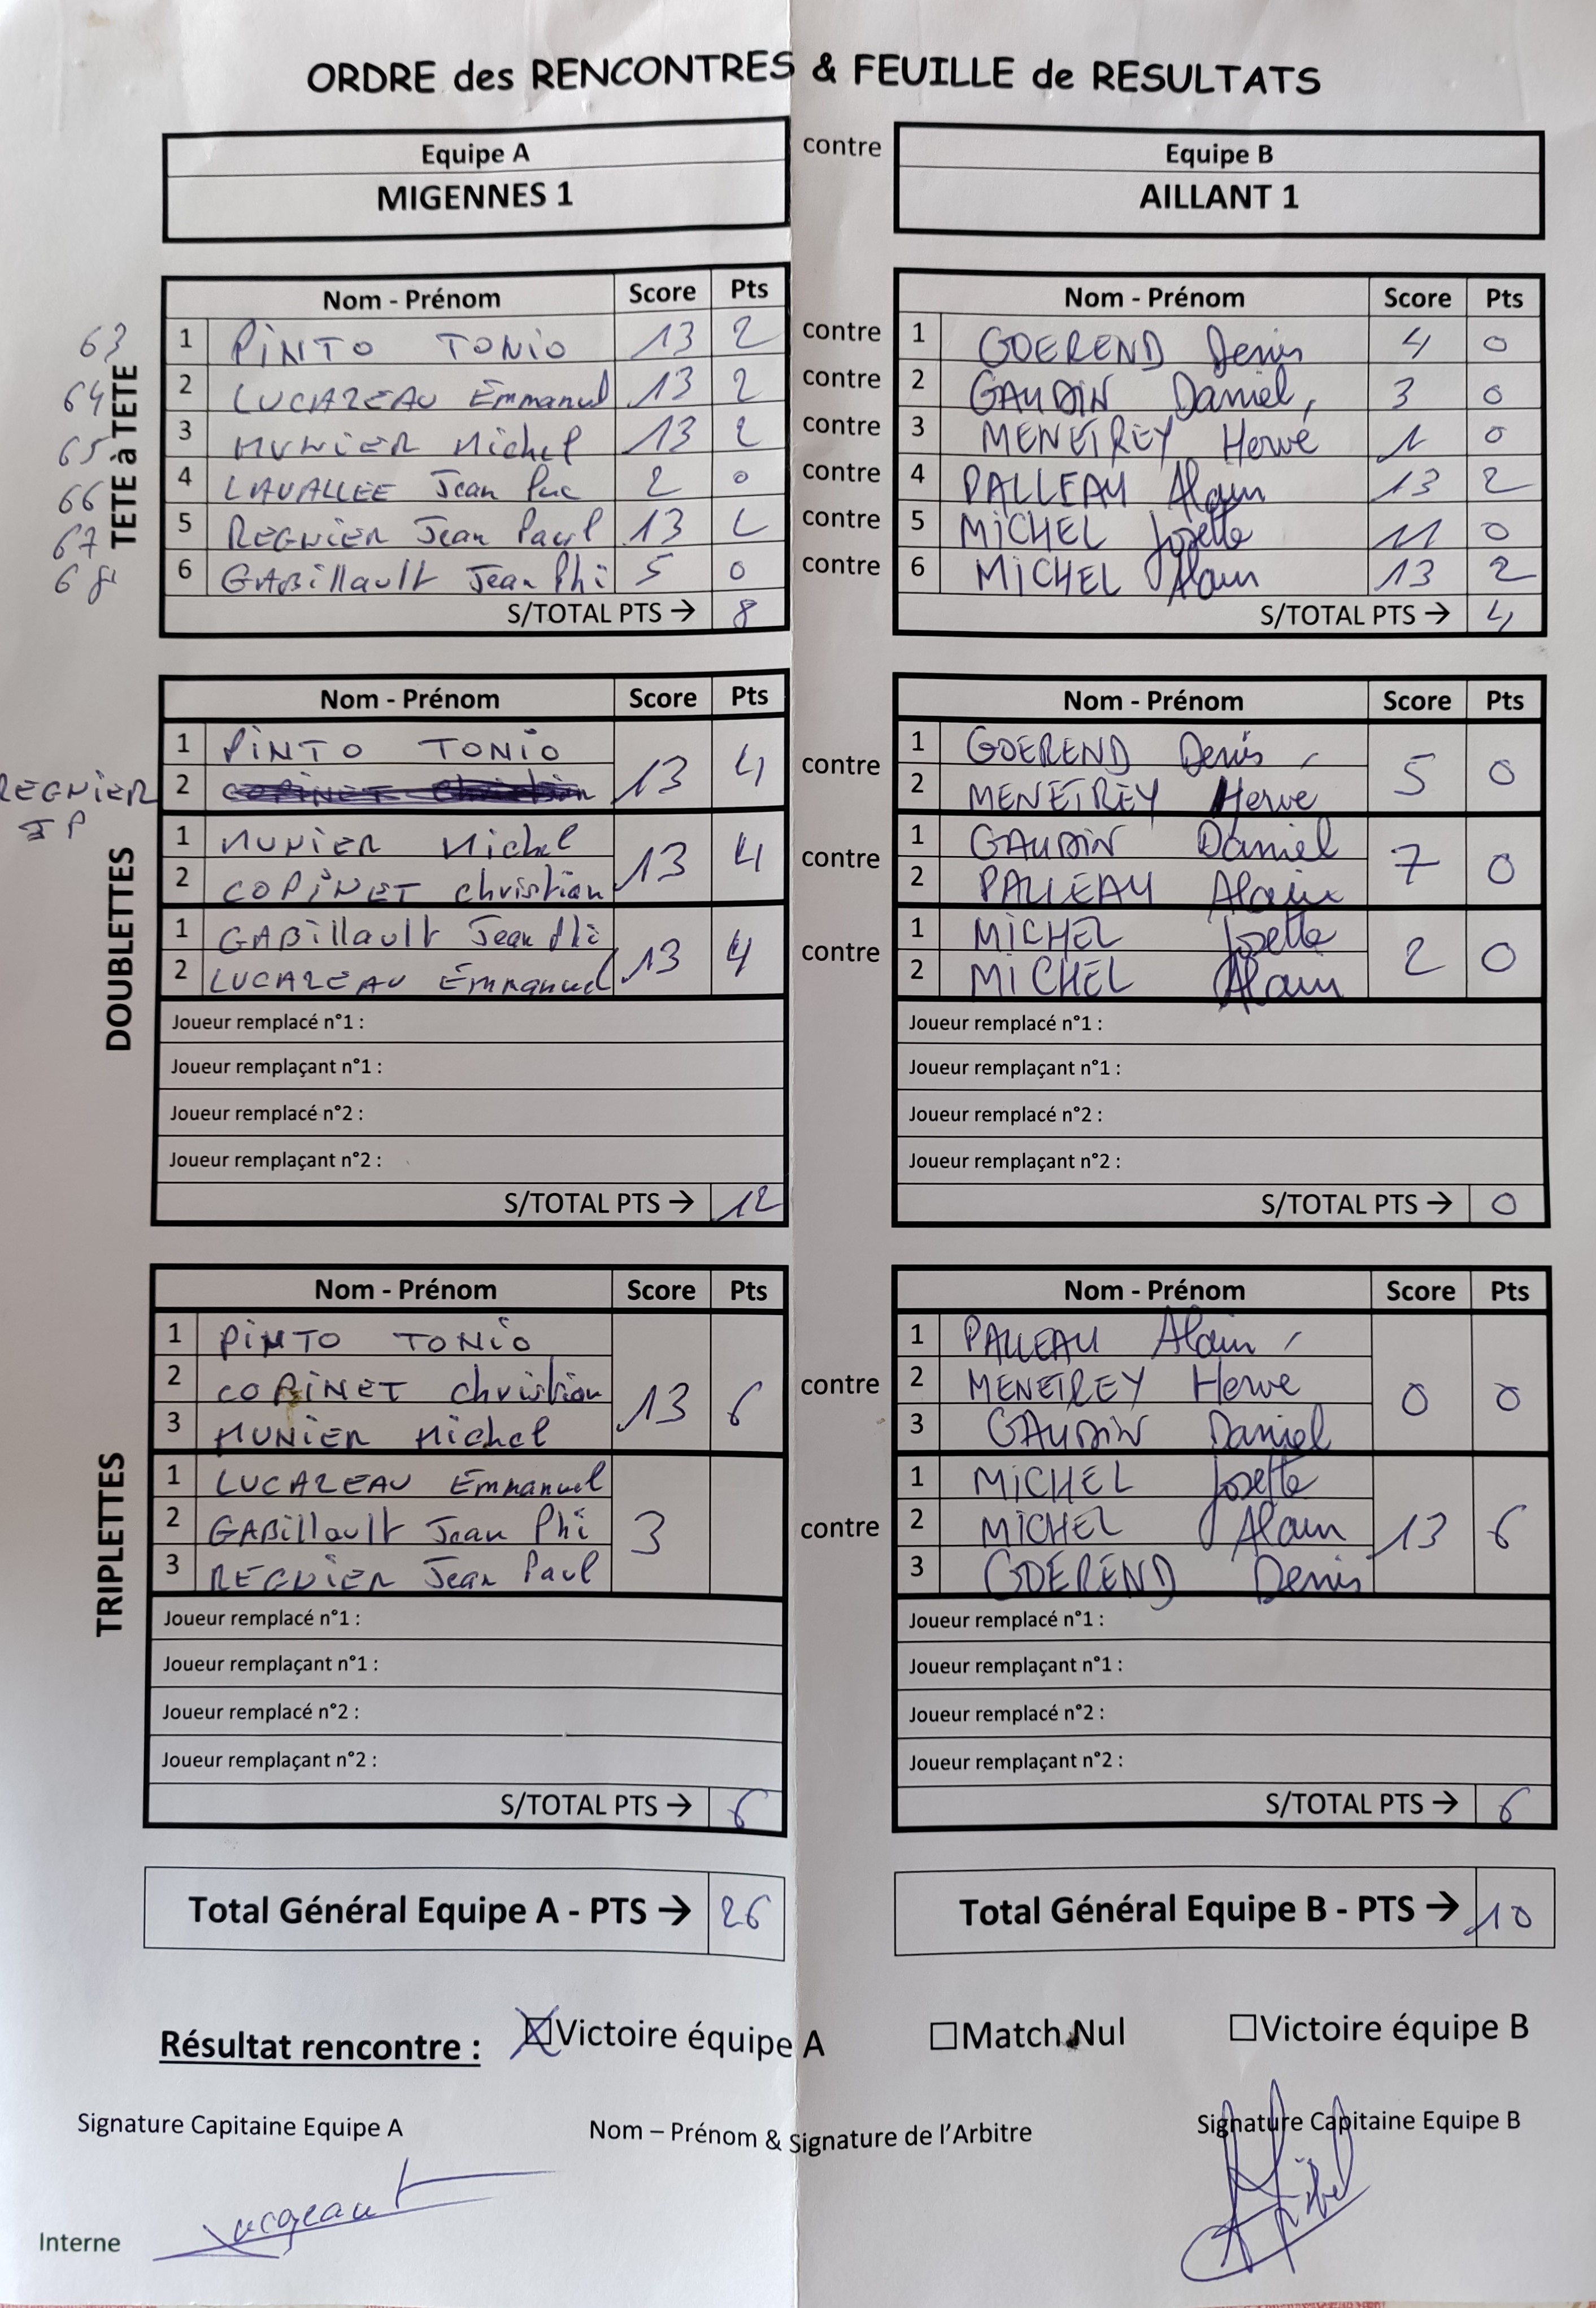 ORDRE des RENCONTRES & FEUILLE de RESULTATS
Equipe A contre Equipe B
MIGENNES 1 AILLANT 1
TETE à TETE
Nom - Prénom Score Pts Nom - Prénom Score Pts
63 1 PINTO TONIO 13 2 contre 1 GOEREND Denis 4 0
64 2 LUCAZEAU Emmanuel 13 2 contre 2 GAUDIN Daniel, 3 0
65 3 MUNIER Michel 13 2 contre 3 MENETREY Hervé 1 0
66 4 LAVALLEE Jean Luc 2 0 contre 4 PALLEAU Alain 13 2
67 5 REGNIER Jean Paul 13 2 contre 5 MICHEL Josette 11 0
68 6 GABillault Jean Phi 5 0 contre 6 MICHEL Alain 13 2
S/TOTAL PTS → 8 S/TOTAL PTS → 4
DOUBLETTES
Nom - Prénom Score Pts Nom - Prénom Score Pts
1 PINTO TONIO 13 4 contre 1 GOEREND Denis 5 0
REGNIER JP 2 COPINET Christian 2 MENETREY Herve
1 MUNIER Michel 13 4 contre 1 GAUDIN Daniel 7 0
2 COPINET christian 2 PALLEAU Alain
1 GABillault Jean Phi 13 4 contre 1 MICHEL Josette 2 0
2 LUCAZEAU Emmanuel 2 MICHEL Alain
Joueur remplacé n°1 : Joueur remplacé n°1 :
Joueur remplaçant n°1 : Joueur remplaçant n°1 :
Joueur remplacé n°2 : Joueur remplacé n°2 :
Joueur remplaçant n°2 : Joueur remplaçant n°2 :
S/TOTAL PTS → 12 S/TOTAL PTS → 0
TRIPLETTES
Nom - Prénom Score Pts Nom - Prénom Score Pts
1 PINTO TONIO 1 PALLEAU Alain
2 COPINET christian 13 6 contre 2 MENETREY Herve 0 0
3 MUNIER Michel 3 GAUDIN Daniel
1 LUCAZEAU Emmanuel 1 MICHEL Josette
2 GABillault Jean Phi 3 contre 2 MICHEL Alain 13 6
3 REGNIER Jean Paul 3 GOEREND Denis
Joueur remplacé n°1 : Joueur remplacé n°1 :
Joueur remplaçant n°1 : Joueur remplaçant n°1 :
Joueur remplacé n°2 : Joueur remplacé n°2 :
Joueur remplaçant n°2 : Joueur remplaçant n°2 :
S/TOTAL PTS → 6 S/TOTAL PTS → 6
Total Général Equipe A - PTS → 26 Total Général Equipe B - PTS → 10
Résultat rencontre : ☒Victoire équipe A ☐Match Nul ☐Victoire équipe B
Signature Capitaine Equipe A Nom – Prénom & Signature de l'Arbitre Signature Capitaine Equipe B
Interne